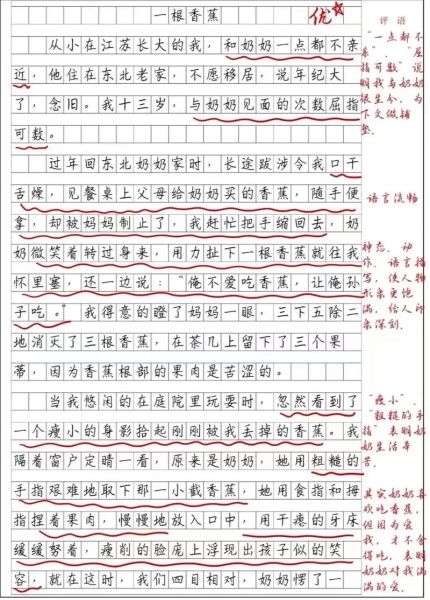 一根香蕉
优
评语
从小在江苏长大的我，和奶奶一点都不亲
近，他住在东北老家，不愿移居，说年纪大
了，念旧。我十三岁，与奶奶见面的次数屈指
可数。
过年回东北奶奶家时，长途跋涉令我口干
舌燥，见餐桌上父母给奶奶买的香蕉，随手便
拿，却被妈妈制止了，我赶忙把手缩回去，奶
奶微笑着转过身来，用力扯下一根香蕉就往我
怀里塞，还一边说：“俺不爱吃香蕉，让俺孙
子吃。”我得意的瞪了妈妈一眼，三下五除二
地消灭了三根香蕉，在茶几上留下了三个果
蒂，因为香蕉根部的果肉是苦涩的。
当我悠闲的在庭院里玩耍时，忽然看到了
一个瘦小的身影拾起刚刚被我丢掉的香蕉。我
隔着窗户定晴一看，原来是奶奶，她用粗糙的
手指艰难地取下那一小截香蕉，她用食指和拇
指捏着果肉，慢慢地放入口中，用干瘪的牙床
缓缓努着，瘦削的脸庞上浮现出孩子似的笑
容，就在这时，我们四目相对，奶奶愣了一
“一点都不
亲”、“屈
指可数”说
明我与奶奶
很生分，为
下文做铺
垫。
语言流畅
神态、动
作、语言描
写，使人物
形象更饱
满，给人印
象深刻.
“瘦小”、
“粗糙的手
指”表明奶
奶生活辛
苦。
其实奶奶喜
欢吃香蕉，
但因为爱
我，才不舍
得吃，表明
奶奶对我满
满的爱.